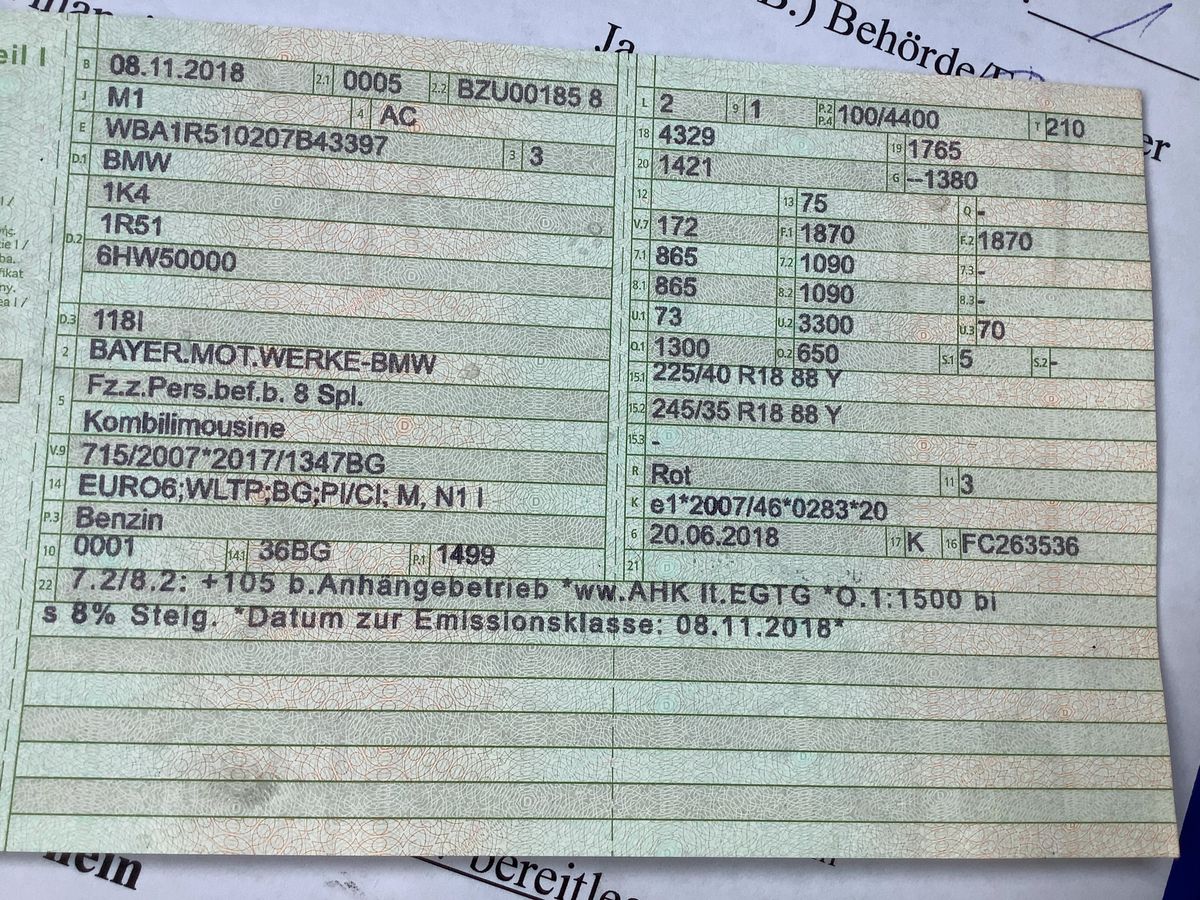 Ja
B.) Behörde/
eil I
B 08.11.2018 2.1 0005 2.2 BZU00185 8
J M1 4 AC
E WBA1R510207B43397 3 3
D.1 BMW
D.2 1K4
1R51
6HW50000
D.3 118I
2 BAYER.MOT.WERKE-BMW
5 Fz.z.Pers.bef.b. 8 Spl.
Kombilimousine
V.9 715/2007*2017/1347BG
14 EURO6;WLTP;BG;PI/CI; M, N1 I
P.3 Benzin
10 0001 14.1 36BG P.1 1499
L 2 9 1 P.2 P.4 100/4400 T 210
18 4329 19 1765
20 1421 G --1380
12 13 75 Q -
V.7 172 F.1 1870 F.2 1870
7.1 865 7.2 1090 7.3 -
8.1 865 8.2 1090 8.3 -
U.1 73 U.2 3300 U.3 70
O.1 1300 O.2 650 S.1 5 S.2 -
15.1 225/40 R18 88 Y
15.2 245/35 R18 88 Y
15.3 -
R Rot 11 3
K e1*2007/46*0283*20
6 20.06.2018 17 K 16 FC263536
21
22 7.2/8.2: +105 b.Anhängebetrieb *ww.AHK lt.EGTG *O.1:1500 bi
s 8% Steig. *Datum zur Emissionsklasse: 08.11.2018*